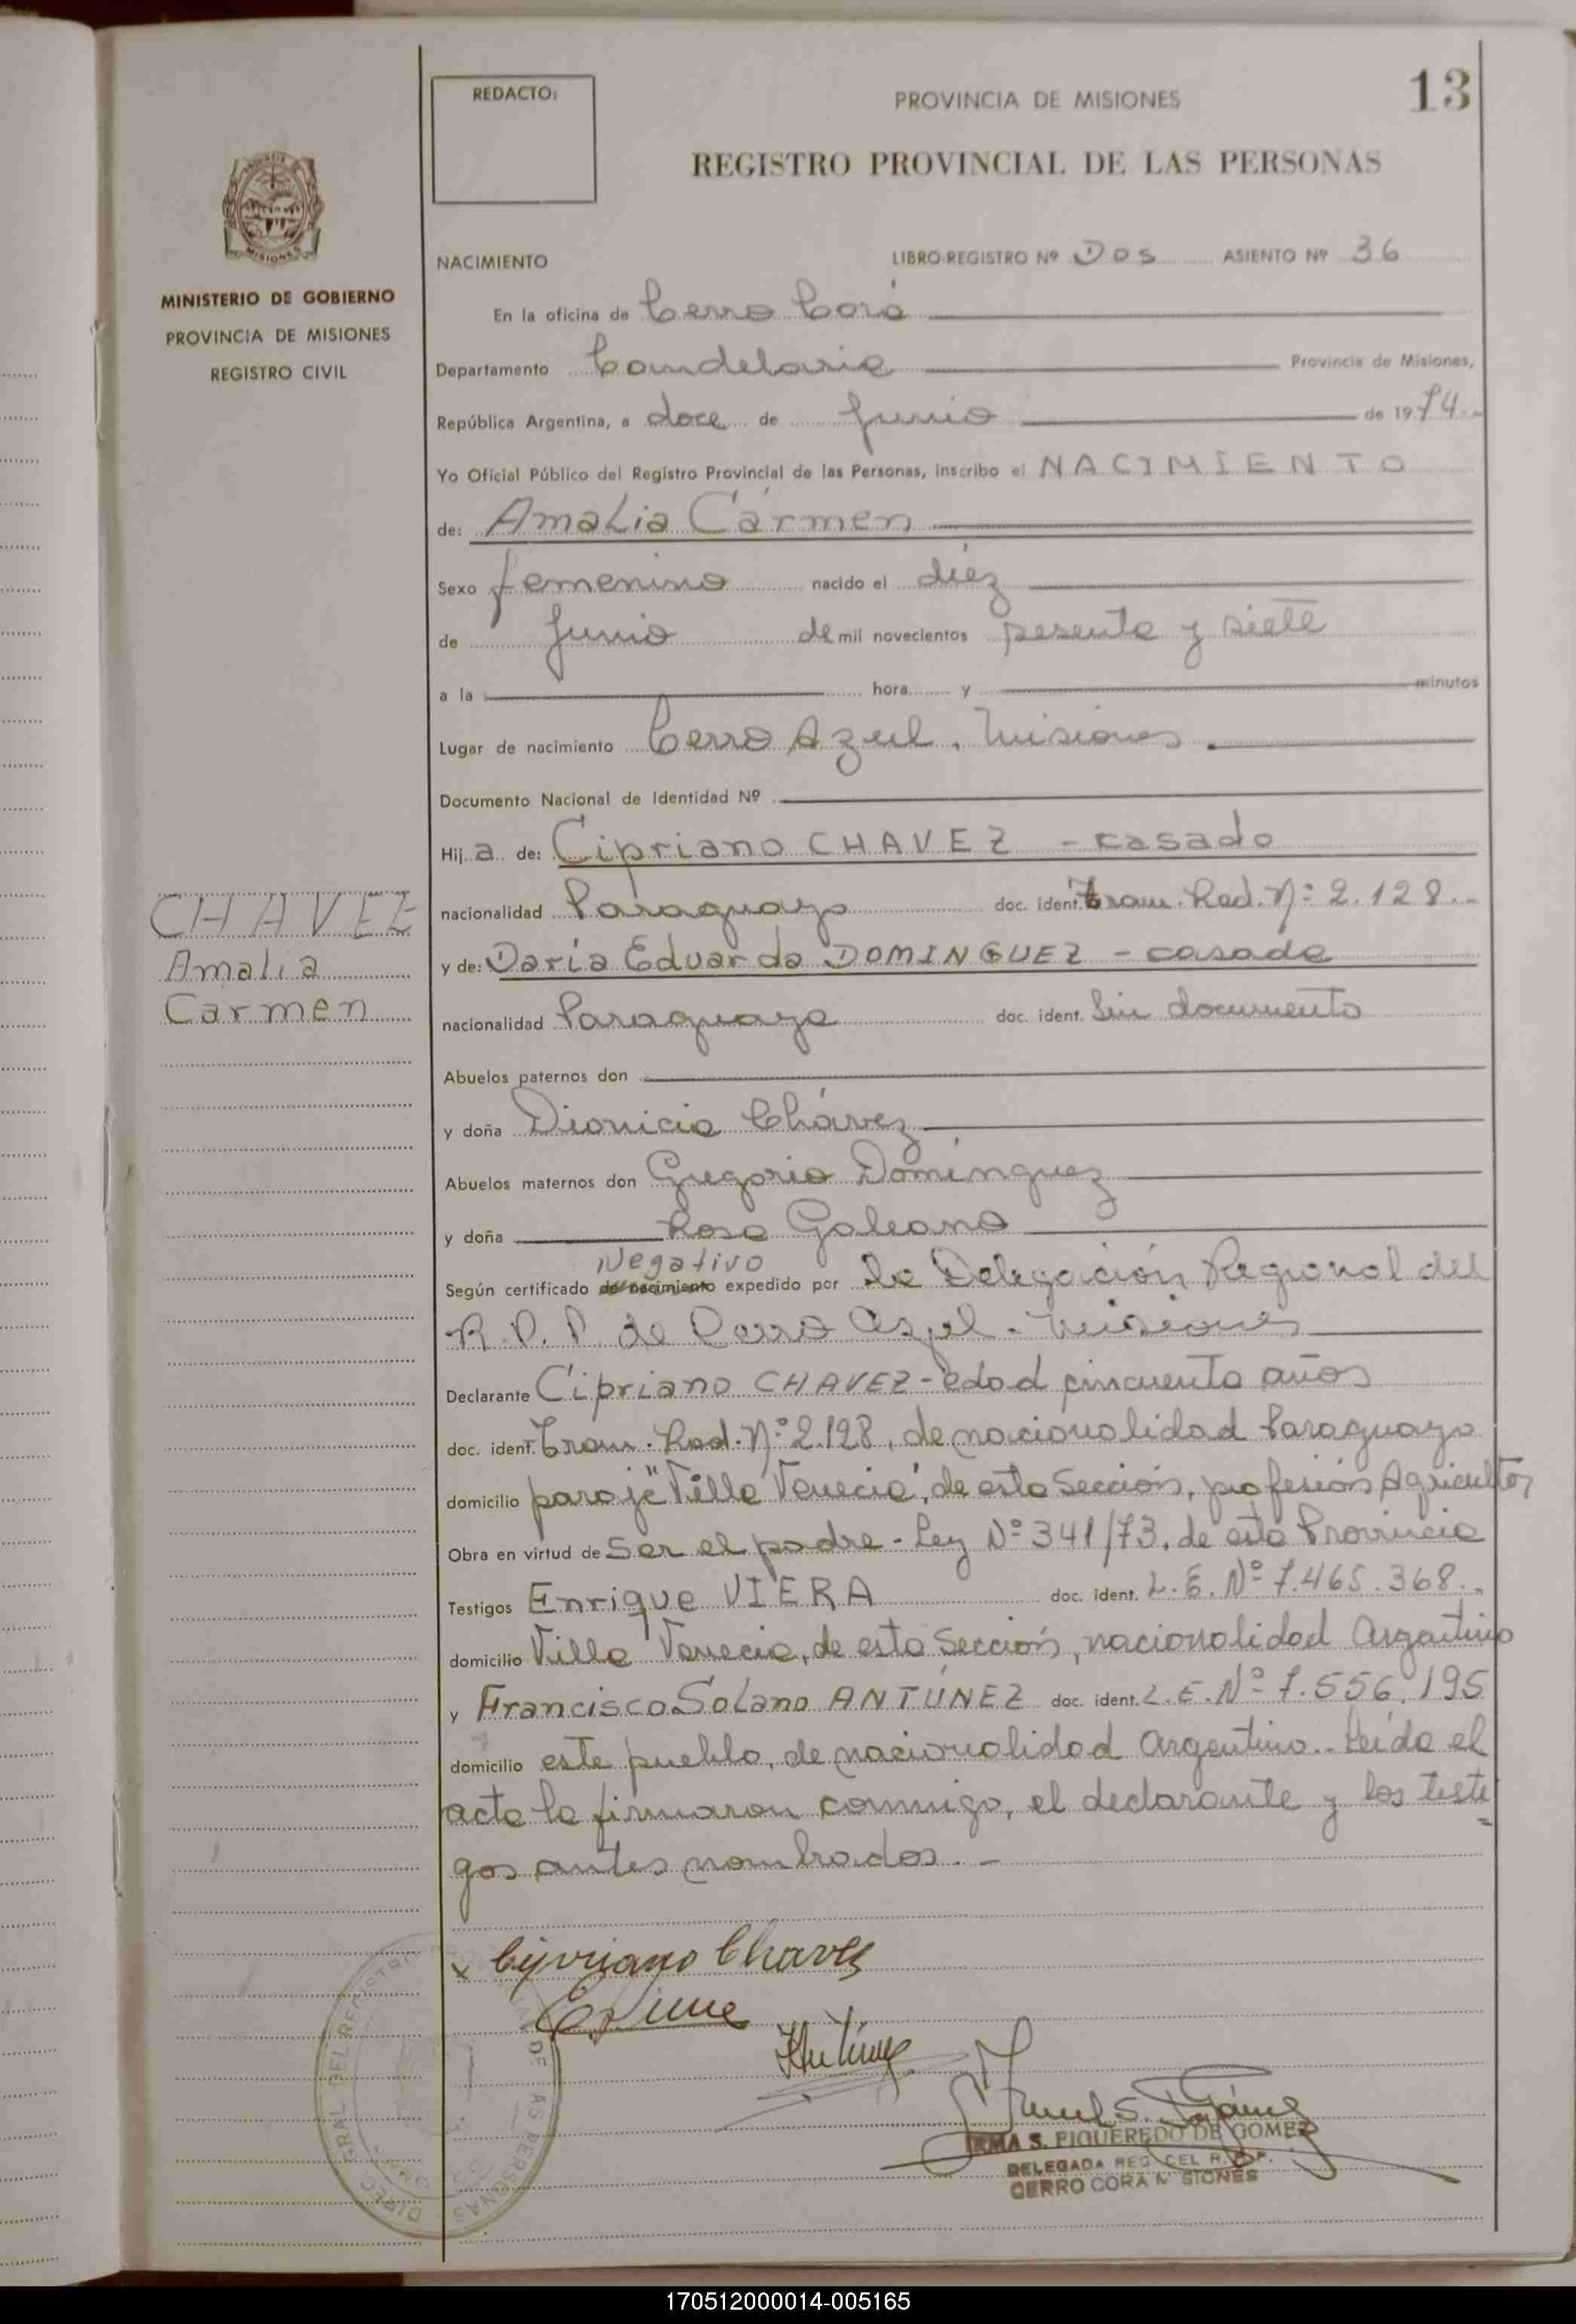 REDACTO:
PROVINCIA DE MISIONES
13
REGISTRO PROVINCIAL DE LAS PERSONAS
MISIONES
MINISTERIO DE GOBIERNO
PROVINCIA DE MISIONES
REGISTRO CIVIL
NACIMIENTO LIBRO-REGISTRO Nº Dos ASIENTO Nº 36
En la oficina de Cerro Corá
Departamento Candelaria Provincia de Misiones,
República Argentina, a doce de Junio de 1974.-
Yo Oficial Público del Registro Provincial de las Personas, inscribo el NACIMIENTO
de: Amalia Cármen
Sexo femenino nacido el diéz
de Junio de mil novecientos sesenta y siete
a la hora y minutos
Lugar de nacimiento Cerro Azul. Misiones.
Documento Nacional de Identidad Nº
Hija de: Cipriano CHAVEZ - casado
nacionalidad Paraguayo doc. ident. Tram. Rad. Nº 2.128.-
y de: Daria Eduarda DOMINGUEZ - casada
nacionalidad Paraguaya doc. ident. Sin documento
CHAVEZ
Amalia
Carmen
Abuelos paternos don
y doña Dionicia Chávez
Abuelos maternos don Gregorio Domínguez
y doña Rosa Galeano
Negativo
Según certificado de nacimiento expedido por la Delegación Regional del
R.P.P. de Cerro Azul - Misiones
Declarante Cipriano CHAVEZ - edad cincuenta años
doc. ident. Tram. Rad. Nº 2.128, de nacionalidad Paraguayo
domicilio paraje "Villa Venecia", de esta Sección, profesión Agricultor,
Obra en virtud de Ser el padre - Ley Nº 341/73. de esta Provincia
Testigos Enrique VIERA doc. ident. L.E. Nº 7.465.368.-
domicilio Villa Venecia, de esta Sección, nacionalidad Argentino
y Francisco Solano ANTÚNEZ doc. ident. L.E. Nº 7.556.195
domicilio este pueblo, de nacionalidad Argentino.- Leída el
acta la firmaron conmigo, el declarante y los testi
gos antes nombrados.-
x Cipriano Chavez
IRMA S. FIGUEREDO DE GOMEZ
DELEGADA REG. DEL R.P.P.
CERRO CORA MISIONES
170512000014-005165